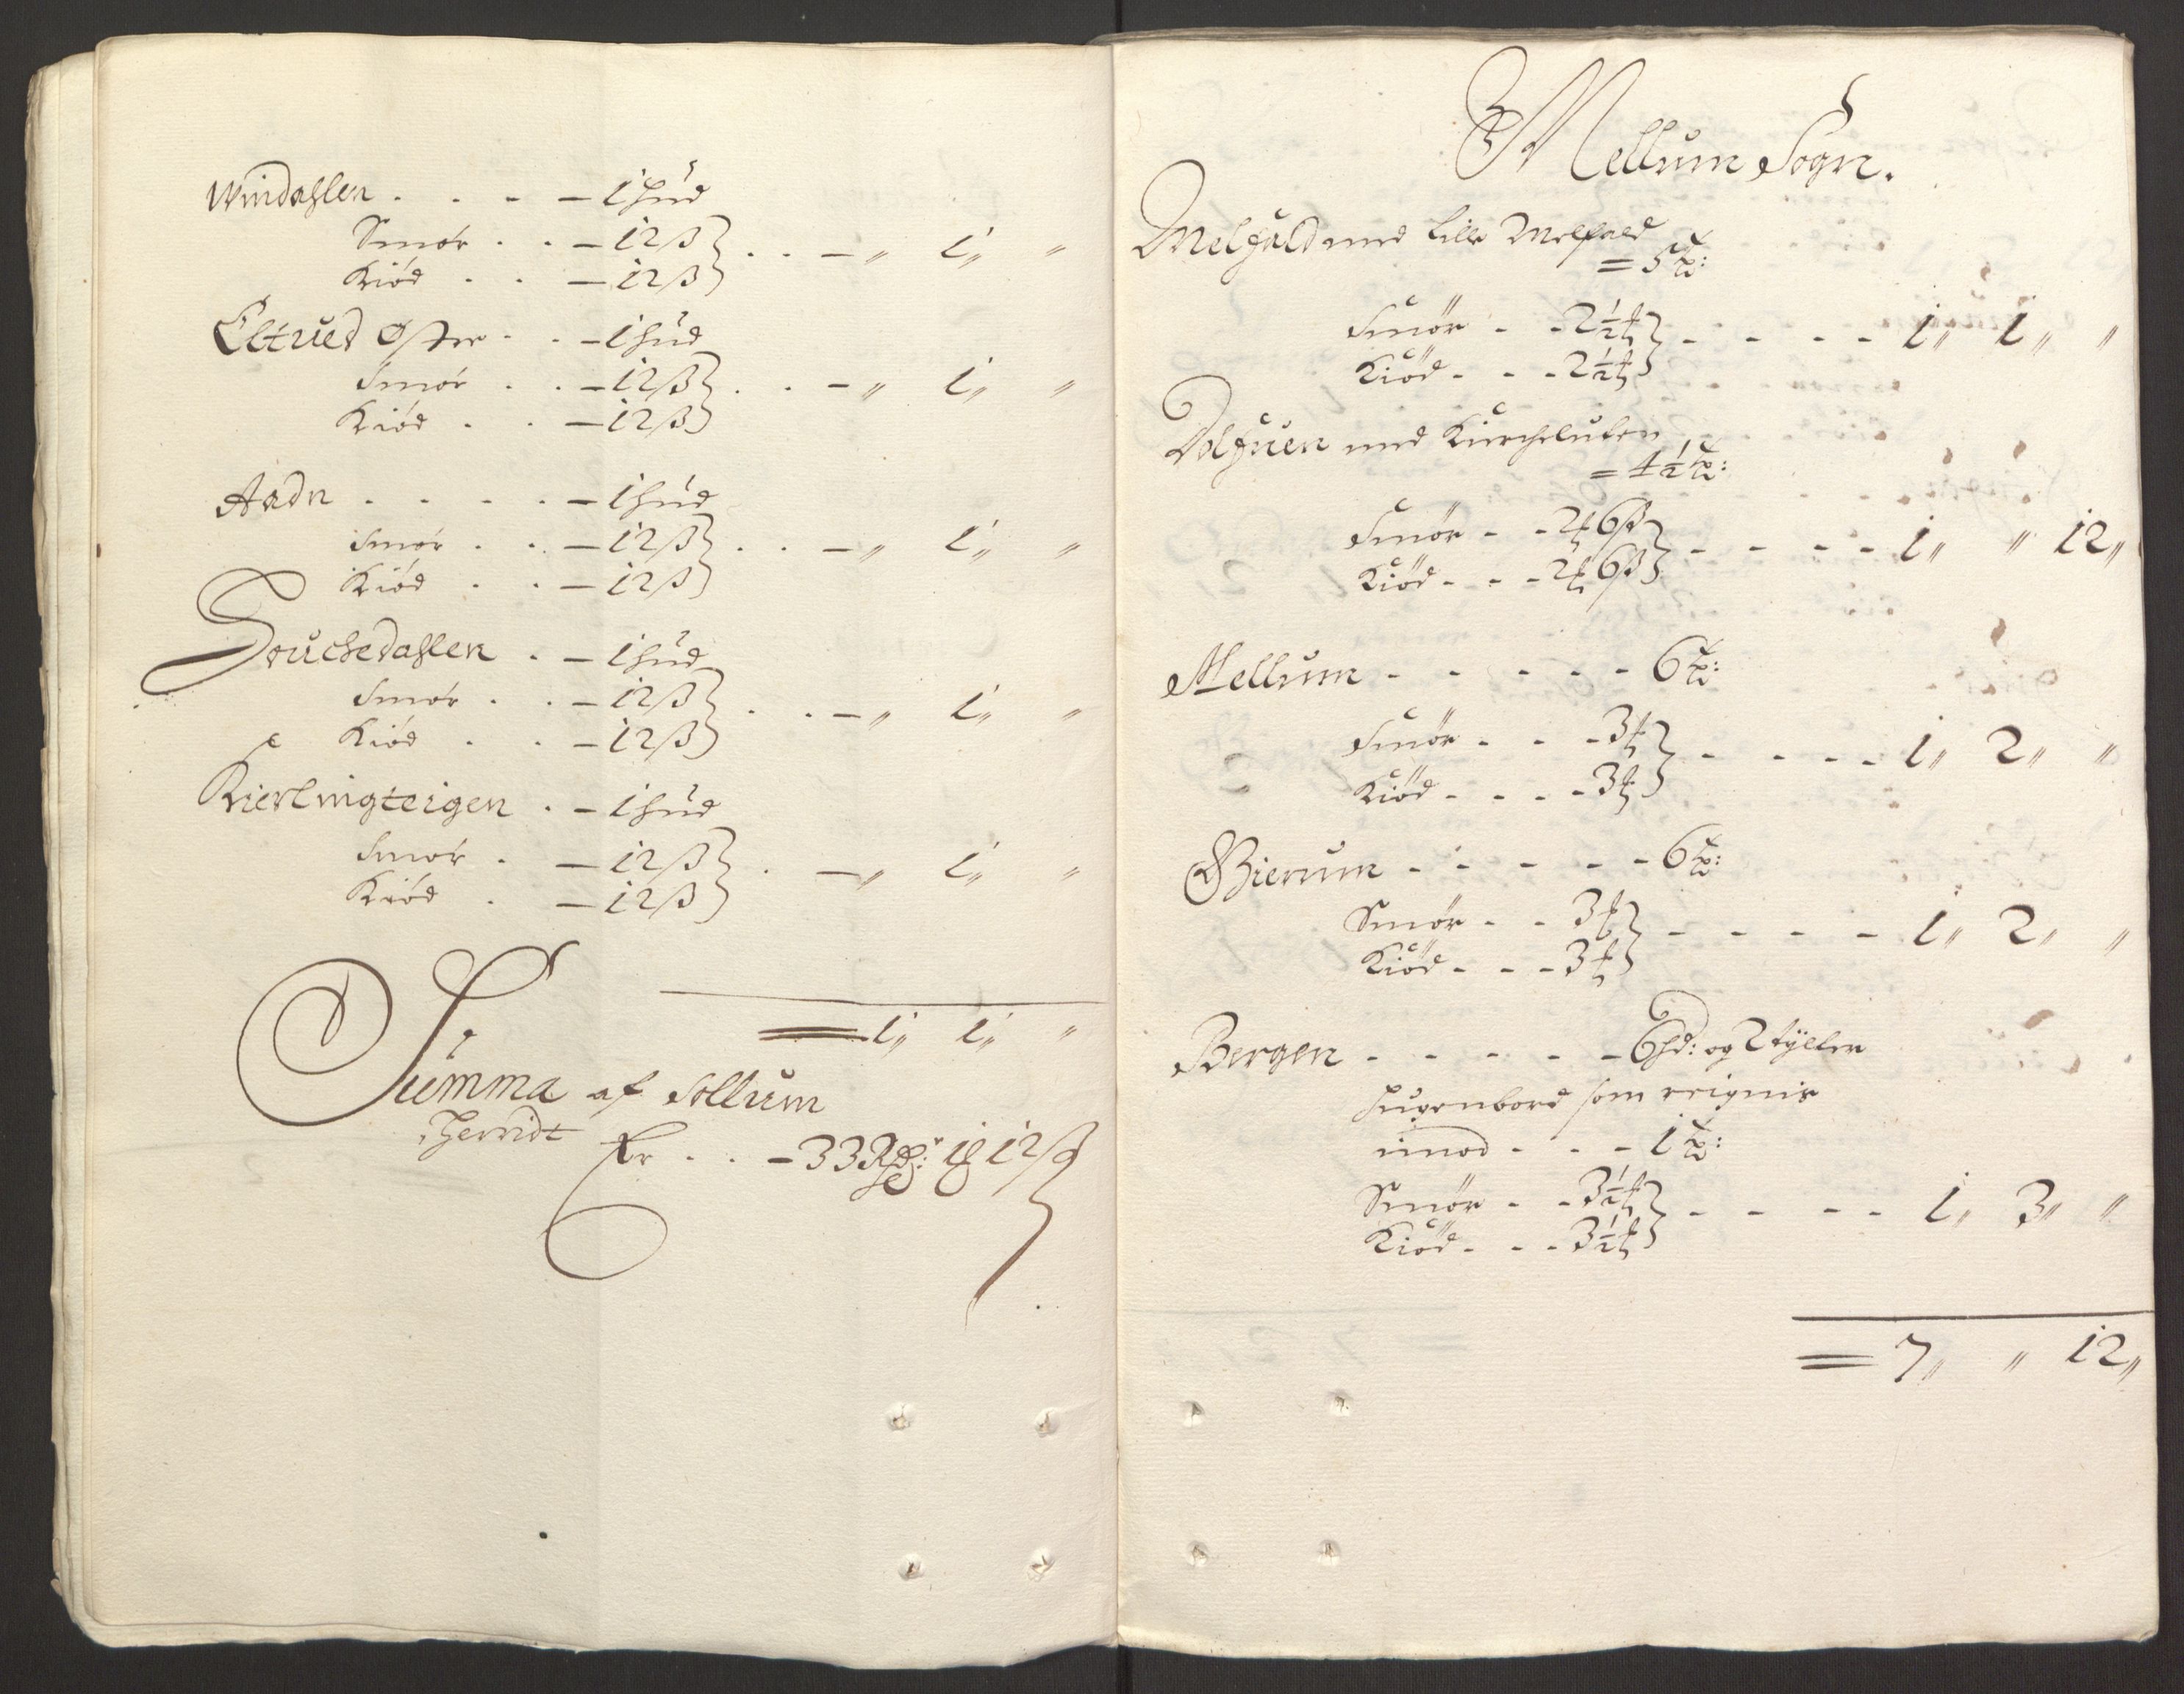 Windahlen . . . — 1 hud
Smør . . — 12 ß
Kiød . . — 12 ß } . . — „ 1 „ „
Eltued Øster . . — 1 hud
Smør . . — 12 ß
Kiød . . — 12 ß } . . — „ 1 „ „
Aadn . . . . — 1 hud
Smør . . — 12 ß
Kiød . . — 12 ß } . . — „ 1 „ „
— 1 hud
Smør . . — 12 ß
Kiød . . — 12 ß } . . — „ 1 „ „
Kierlingteigen . — 1 hud
Smør . — 12 ß
Kiød . — 12 ß } . — „ 1 „ „
= 1 „ 1 „ „
Summa af Sollum
Herridt
Er . . — 33 Rdr 12 ß
Mellum Sogn.
med lille
= 5
Smør - - 2½
Kiød - - - 2½ } - - - - 1 „ 1 „ „
med
= 4½
Smør - - 2 6 ß
Kiød - - - 2 6 ß } - - - - 1 „ „ 12 „
Mellum - - - - - 6
Smør - - - 3
Kiød - - - - 3 } - - - - 1 „ 2 „ „
Bierum - - - - - 6
Smør - - 3
Kiød - - - 3 } - - - - 1 „ 2 „ „
Bergen - - - - - 6 hd: og 2 tylter
Hugenbord som reignis
imod - - - 1
Smør - - 3½
Kiød - - - 3½ } - - - - 1 „ 3 „ „
= 7 „ „ 12 „